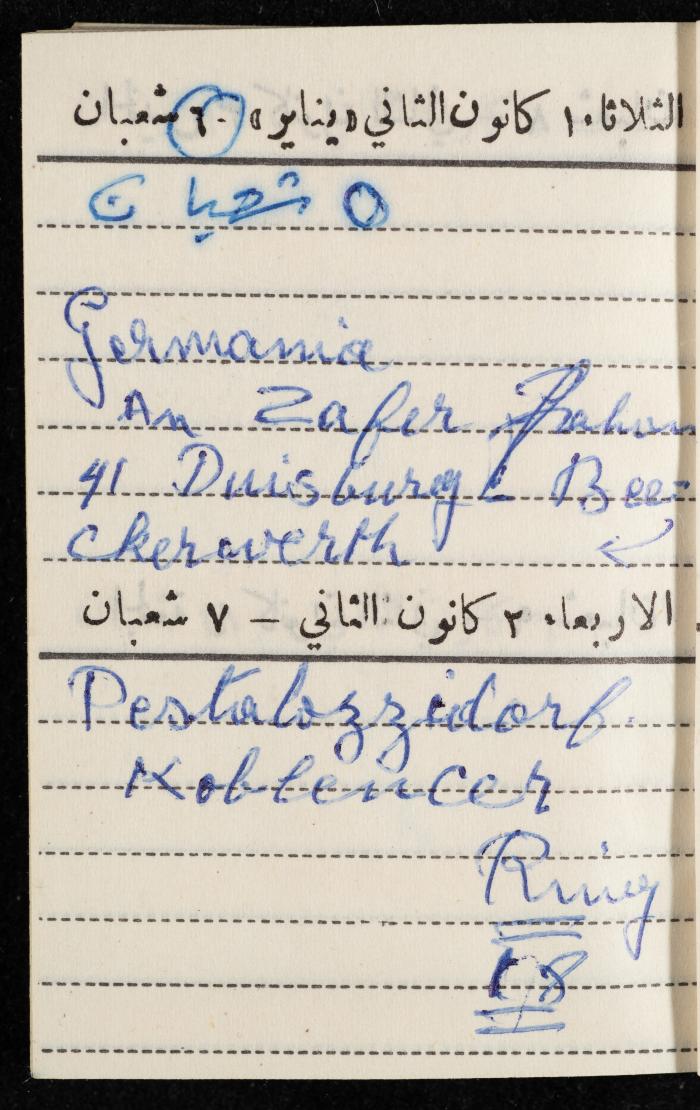 الثلاثاء ١ كانون الثاني «يناير» - ٦ شعبان
٥ شعبان
Germania
An Zafer
41 Duisburg - Bee-
ckerwerth
الاربعاء ٢ كانون الثاني — ٧ شعبان
Pestalozzidorf.
Koblencer
Ring
18